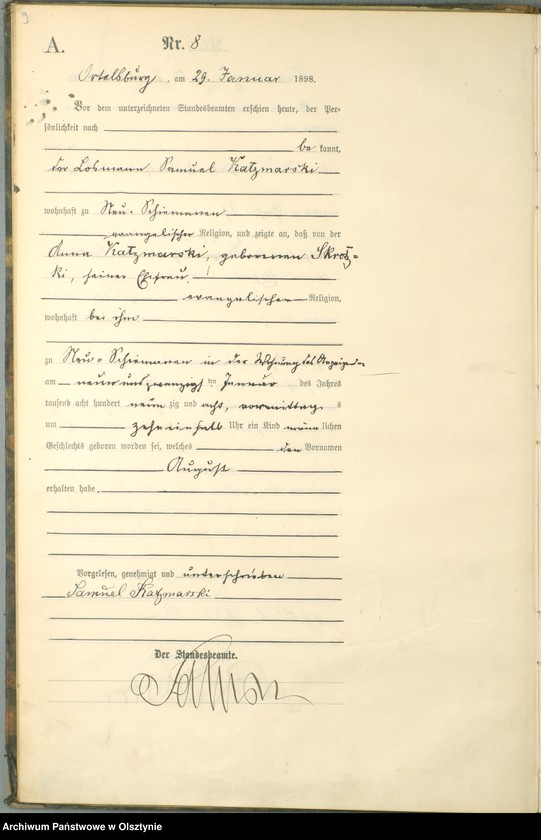 9
A.
Nr. 8
Ortelsburg, am 29. Januar 1898.
Vor dem unterzeichneten Standesbeamten erschien heute, der Per-
sönlichkeit nach
be kannt,
der Losmann Samuel Katzmarski
wohnhaft zu Neu-Schiemanen
evangelischer Religion, und zeigte an, daß von der
Anna Katzmarski, geborenen Skrotz-
ki, seiner Ehefrau,
evangelischen Religion,
wohnhaft bei ihm
zu Neu-Schiemanen in der Wohnung des
am neunundzwanzigsten Januar des Jahres
tausend acht hundert neunzig und acht, vormittags
um zehneinhalb Uhr ein Kind männlichen
Geschlechts geboren worden sei, welches den Vornamen
August
erhalten habe.
Vorgelesen, genehmigt und unterschrieben
Samuel Katzmarski
Der Standesbeamte.
Archiwum Państwowe w Olsztynie